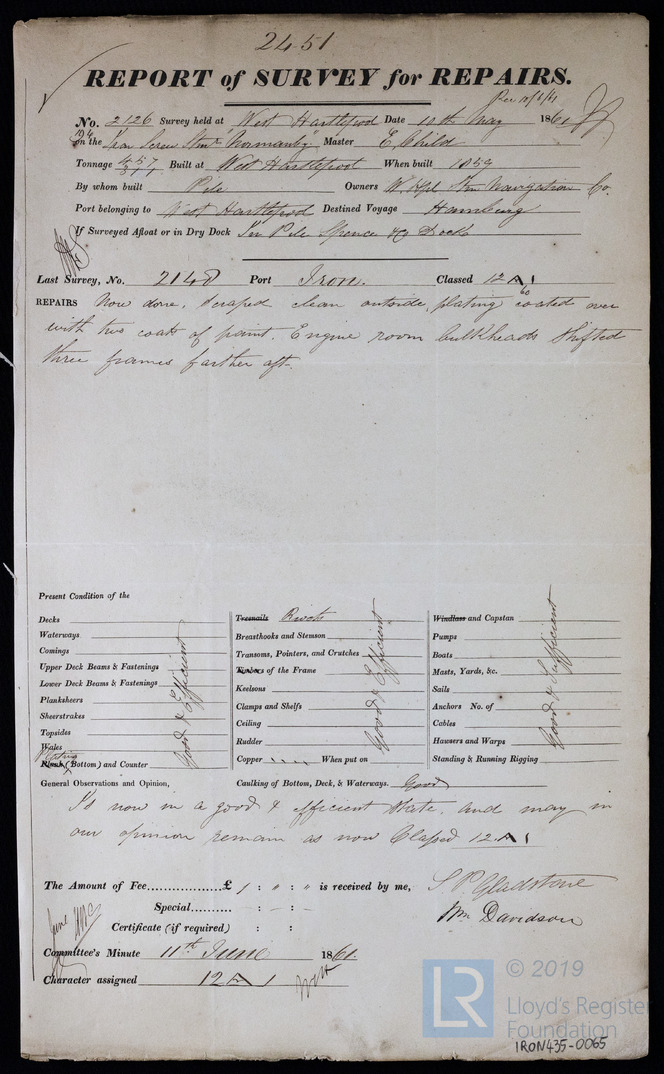 2451
REPORT of SURVEY for REPAIRS.
Rec 10/6/61
No. 2126 Survey held at West Hartlepool Date 10th May 1861
on the Iron Screw Stmr "Normanby" Master E, Child
Tonnage 457 Built at West Hartlepool When built 1859
By whom built Pile Owners W. Hpl Stm Navigation Co.
Port belonging to West Hartlepool Destined Voyage Hamburg
If Surveyed Afloat or in Dry Dock In Pile Spence & Co Dock
Last Survey, No. 2148 Port Iron. Classed 12 A 1
60
REPAIRS Now done. Scraped clean outside, plating coated over
with two coats of paint. Engine room bulkheads shifted
three frames farther aft.
Present Condition of the
Decks
Waterways
Comings
Upper Deck Beams & Fastenings
Lower Deck Beams & Fastenings
Planksheers
Sheerstrakes
Topsides
Wales
Plating
Plank (Bottom) and Counter
Good & Efficient
Treenails Rivets
Breasthooks and Stemson
Transoms, Pointers, and Crutches
Timbers of the Frame
Keelsons
Clamps and Shelfs
Ceiling
Rudder
Copper When put on
Good & Efficient
Windlass and Capstan
Pumps
Boats
Masts, Yards, &c.
Sails
Anchors No. of
Cables
Hawsers and Warps
Standing & Running Rigging
Good & Sufficient
General Observations and Opinion, Caulking of Bottom, Deck, & Waterways. Good
Is now in a good & efficient state, and may in
our opinion remain as now Classed 12 A 1
The Amount of Fee...............£ 1 : " : " is received by me, S. P. Gladstone
Special......... : - : -
Wm Davidson
Certificate (if required) : :
Committee's Minute 11th June 1861.
Character assigned 12 A 1
LR
© 2019
Lloyd's Register
Foundation
IRON435-0065